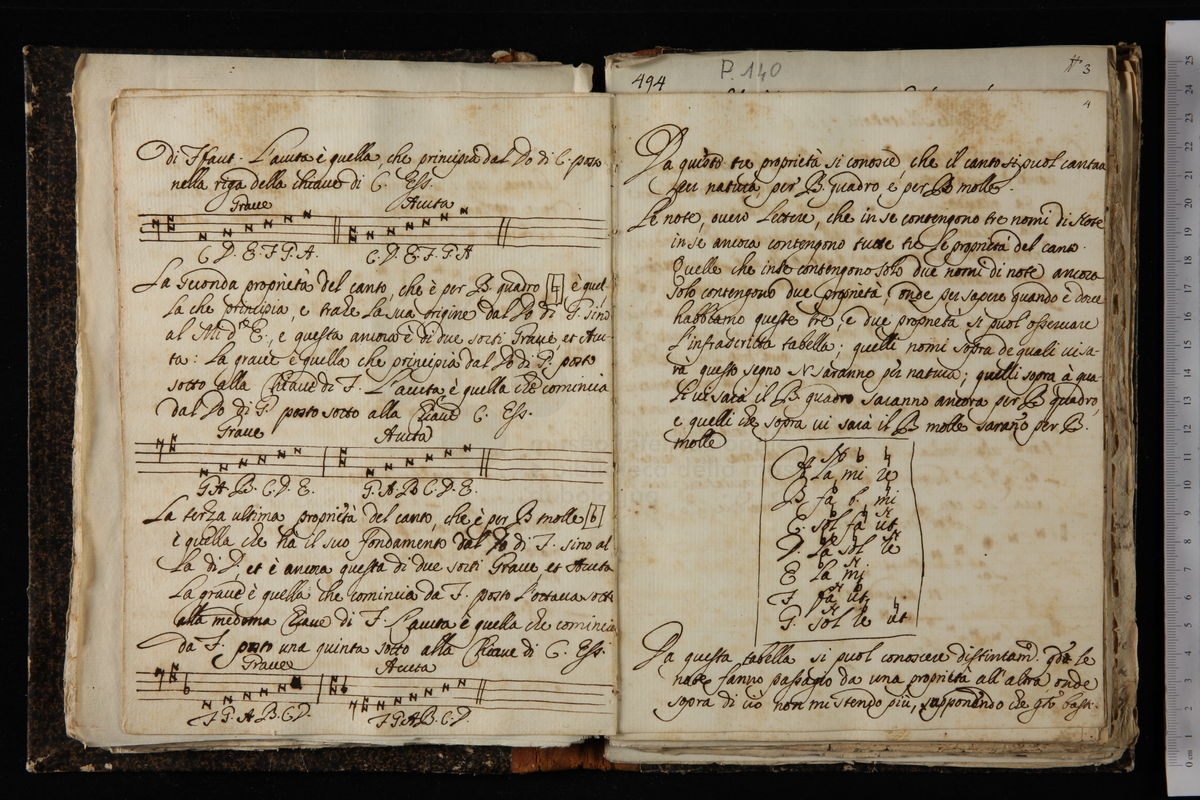 di Ffaut. L'acuta è quella che principia dal Do di C. posto
nella riga della chiave di C. Ess.
Grave Acuta
C. D. E. F. G. A. C. D. E. F. G. A
La seconda proprietà del canto che è per B quadro ♮ è quel
la che principia, e trahe la sua origine dal Do di G. sino
al Mi d'E., e questa ancora è di due sorti Grave et Acu-
ta: La grave è quella che principia dal Do di G. posto
sotto alla Chiave di F. L'acuta è quella che comincia
dal Do di G. posto sotto alla Chiave C. Ess.
Grave Acuta
G. A. B. C. D. E. G. A. B. C. D. E.
La terza ultima proprietà del canto, che è per B molle b
è quella che ha il suo fondamento dal Do di F. sino al
La di D. et è ancora questa di due sorti Grave et Acuta
La grave è quella che comincia da F. posto l'ottava sotto
alla medema Chiave di F. L'acuta è quella che comincia
da F. posto una quinta sotto alla Chiave di C. Ess.
Grave Acuta
F. G. A. B. C. D. F. G. A. B. C. D.
494 P. 140 3
4
Da queste tre proprietà si conosce, che il canto si puol cantare
per natura per B quadro e per B molle.
Le note, overo Lettere, che in se contengono tre nomi di Note
in se ancora contengono tutte tre le proprietà del canto.
Quelle che in se contengono solo due nomi di note ancora
solo contengono due proprietà, onde per sapere quando e dove
habbiamo queste tre, e due proprietà si puol osservare
l'infrascritta tabella; quelli nomi sopra de quali vi sa-
rà questo segno N saranno per natura; quelli sopra à qua-
li vi sarà il B quadro saranno ancora per B quadro,
e quelli che sopra vi sarà il B molle sarano per B.
molle
N b ♮
A La mi re
b ♮
B fa b. mi
C. sol fa ut
D. La sol re
E La mi
F. fa ut
G. sol re ut
Da questa tabella si puol conoscere distintam. qdo le
note fanno passagio da una proprietà all'altra, onde
sopra di ciò non mi stendo più, supponendo che qto basti.